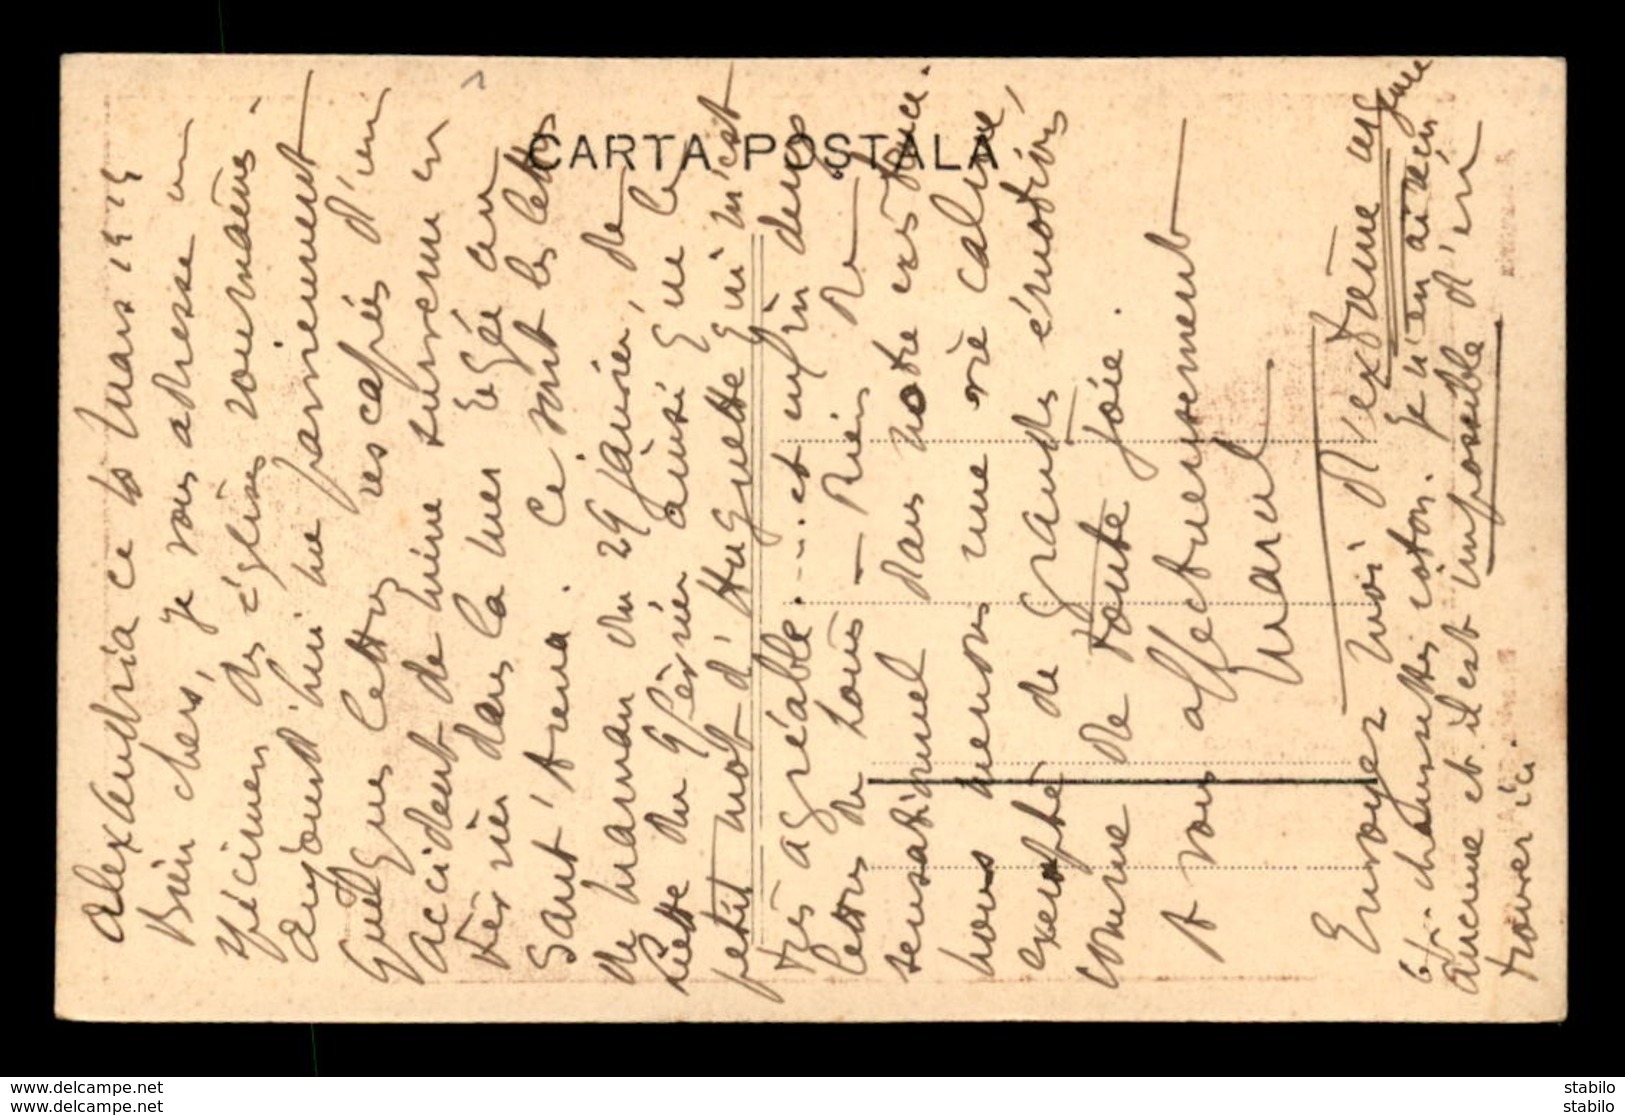 CARTA POSTALA
Alexandria ce 10 Mars 1919
Bien chers, je vous adresse un
spécimen des églises roumaines.
aujourd'hui me parviennent
quelques lettres rescapées d'un
accident de mine survenu en
Février dans la mer Egée au
Sant'Anna. Ce sont les lettres
de maman du 29 Janvier, de
Liette du 9 Février ainsi que le
petit mot d'Huguette qui m'est
très agréable .... et enfin deux
lettres de Louis — Rien de
sensationnel dans notre existence.
nous menons une vie calme,
exempte de grandes émotions
comme de toute joie.
A vous affectueusement
Marcel
Envoyez moi d'extrême urgence
6 p. chaussettes coton. Je n'en ai rien
aucune et il est impossible d'en
trouver ici.
www.delcampe.net
www.delcampe.net
stabilo
stabilo